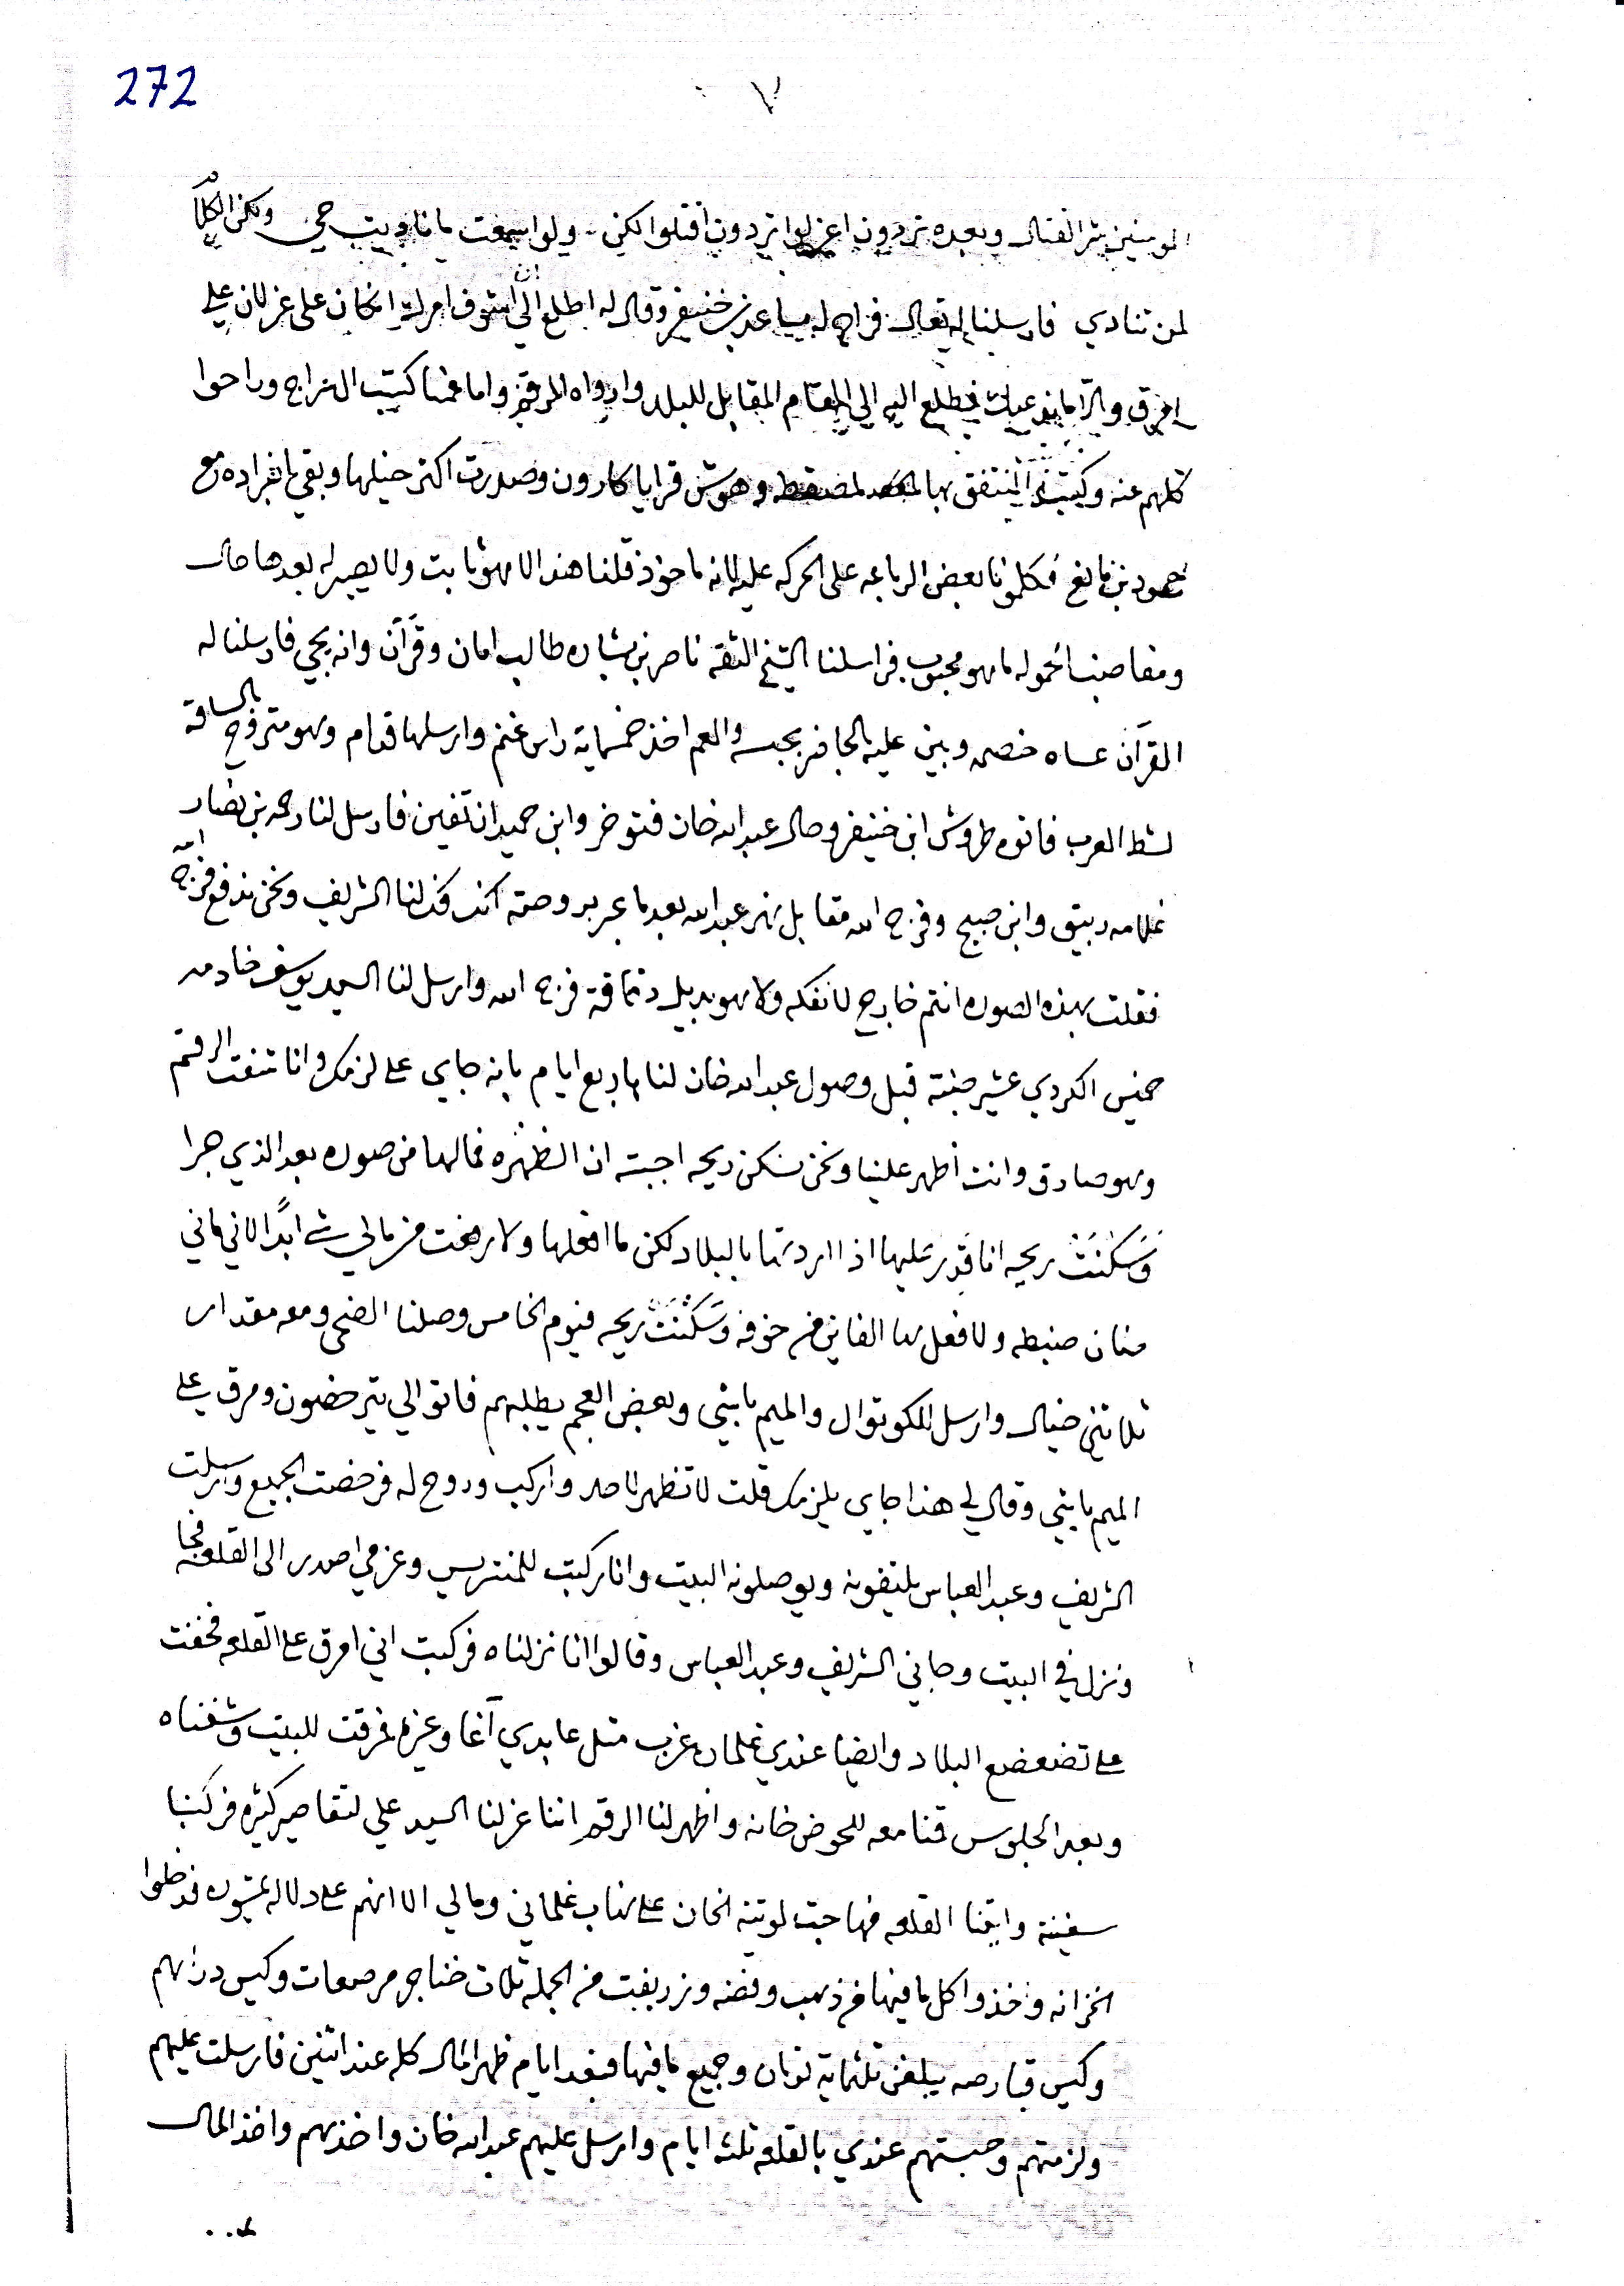 272
٧
المومنين شر القتال وبعده تردون اعزلوا تردون اقتلوا لكن ولو اسمعت ما ناديت حي ولكن الكلام
لمن تنادي فارسلنا له تعال فراح له سياعد بن خنيفر وقال له اطلع الي ان اشوف امرك انكان على عزلان علي
امرق والا ما ند عيك فطلع اليه الى المقام المقابل للبلد وارواه الرقم واما عمنا كتيب الهزاج وراحوا
كلهم عنه وكتيبة المنتفق بها وهوش قرايا كارون وصدرت اكثر خيلها وبقي بانفراده مع
حمود بن مانع فكلمونا بعض الرباعه على الحركه عليه لانه ماخوذ قلنا هذا الامر هو ثابت ولا يصير له بعدها حال
ومفاصيبا لحموله ما هو محبوب فراسلنا الشيخ الثقه ناصر بن بشاره طالب امان وقرآن وانه يجي فارسلنا له
القرآن عساه خصمه وبين عليه الحافر بحبسه والعم اخذ خمسماية راس غنم وارسلها قدام وهو متروح بالساقه
لشط العرب فاتوه طروش ابن خنيفر وصال عبدالله خان فتوخر وابن حميدان تفين فارسل لنا رحمه بن نصار
غلامه ربيق وابن صبيح وفرج الله مقابل نهر عبدالله بعد ما عبر بروحته انك فك لنا الشريف ونحن ندفع فرج الله
فقلت بهذه الصوره انتم خارج لا نفكه ولا هو بديل دناقة فرج الله وارسل لنا السيد يوسف خادمه
خميس الكردي عشير جنته قبل وصول عبدالله خان لنا باربع ايام بانه جاي على لزمك وانا شفت الرقم
وهو صادق وانت اظهر علينا ونحن نسكن ريحه اجبته ان الظهره فمالها من صوره بعد الذي جرا
وَسَكَنَتْ ريحه انا قدير عليها اذا اردتها بالبلاد لكن ما افعلها ولا رهنت من مالي شي ابدًا لاني ماني
منان ضبطه ولا فعل لها الفاين من خوفه وَسَكَنَتْ ريحه فيوم الخامس وصلنا الضحى ومعه مقدار
ثلاثين خيال وارسل للكوتوال والميم باشي وبعض العجم يطلبهم فاتوا لي يترخصون ومرق علي
الميم باشي وقال لي هذا جاي يلزمك قلت لا تظهر لاحد واركب وروح له فرخصت الجميع وارسلت
الشريف وعبد العباس يلتقونه ويوصلونه البيت وانا ركبت للمنتريس وعزمي اصدر الى القلعه فجا
ونزل في البيت وجاني الشريف وعبد العباس وقالوا انا نزلناه فركبت اني امرق على القلعه فخفت
على تضعضع البلاد وايضا عندي غلمان غرب مثل عابدي آغا وعزم فمرقت للبيت وشفناه
وبعد الجلوس قمنا معه للحوض خانه واظهر لنا الرقم اننا عزلنا السيد علي لتقاصير كثيره فركبنا
سفينة واتينا القلعه فهاجت لوتية الخان على نهاب غلماني ومالي الا انهم على دلاله يمشون فدخلوا
الخزانه وخذوا كل ما فيها من ذهب وفضه وزربفت من الجمله ثلاث خناجر مرصعات وكيس دراهم
وكيس قبارصه يبلغن ثلثماية تومان وجميع ما فيها فبعد ايام ظهر المال كله عند اثنين فارسلت عليهم
ولزمتهم وحبستهم عندي بالقلعه ثلثه ايام وارسل عليهم عبدالله خان واخذهم واخذ المال